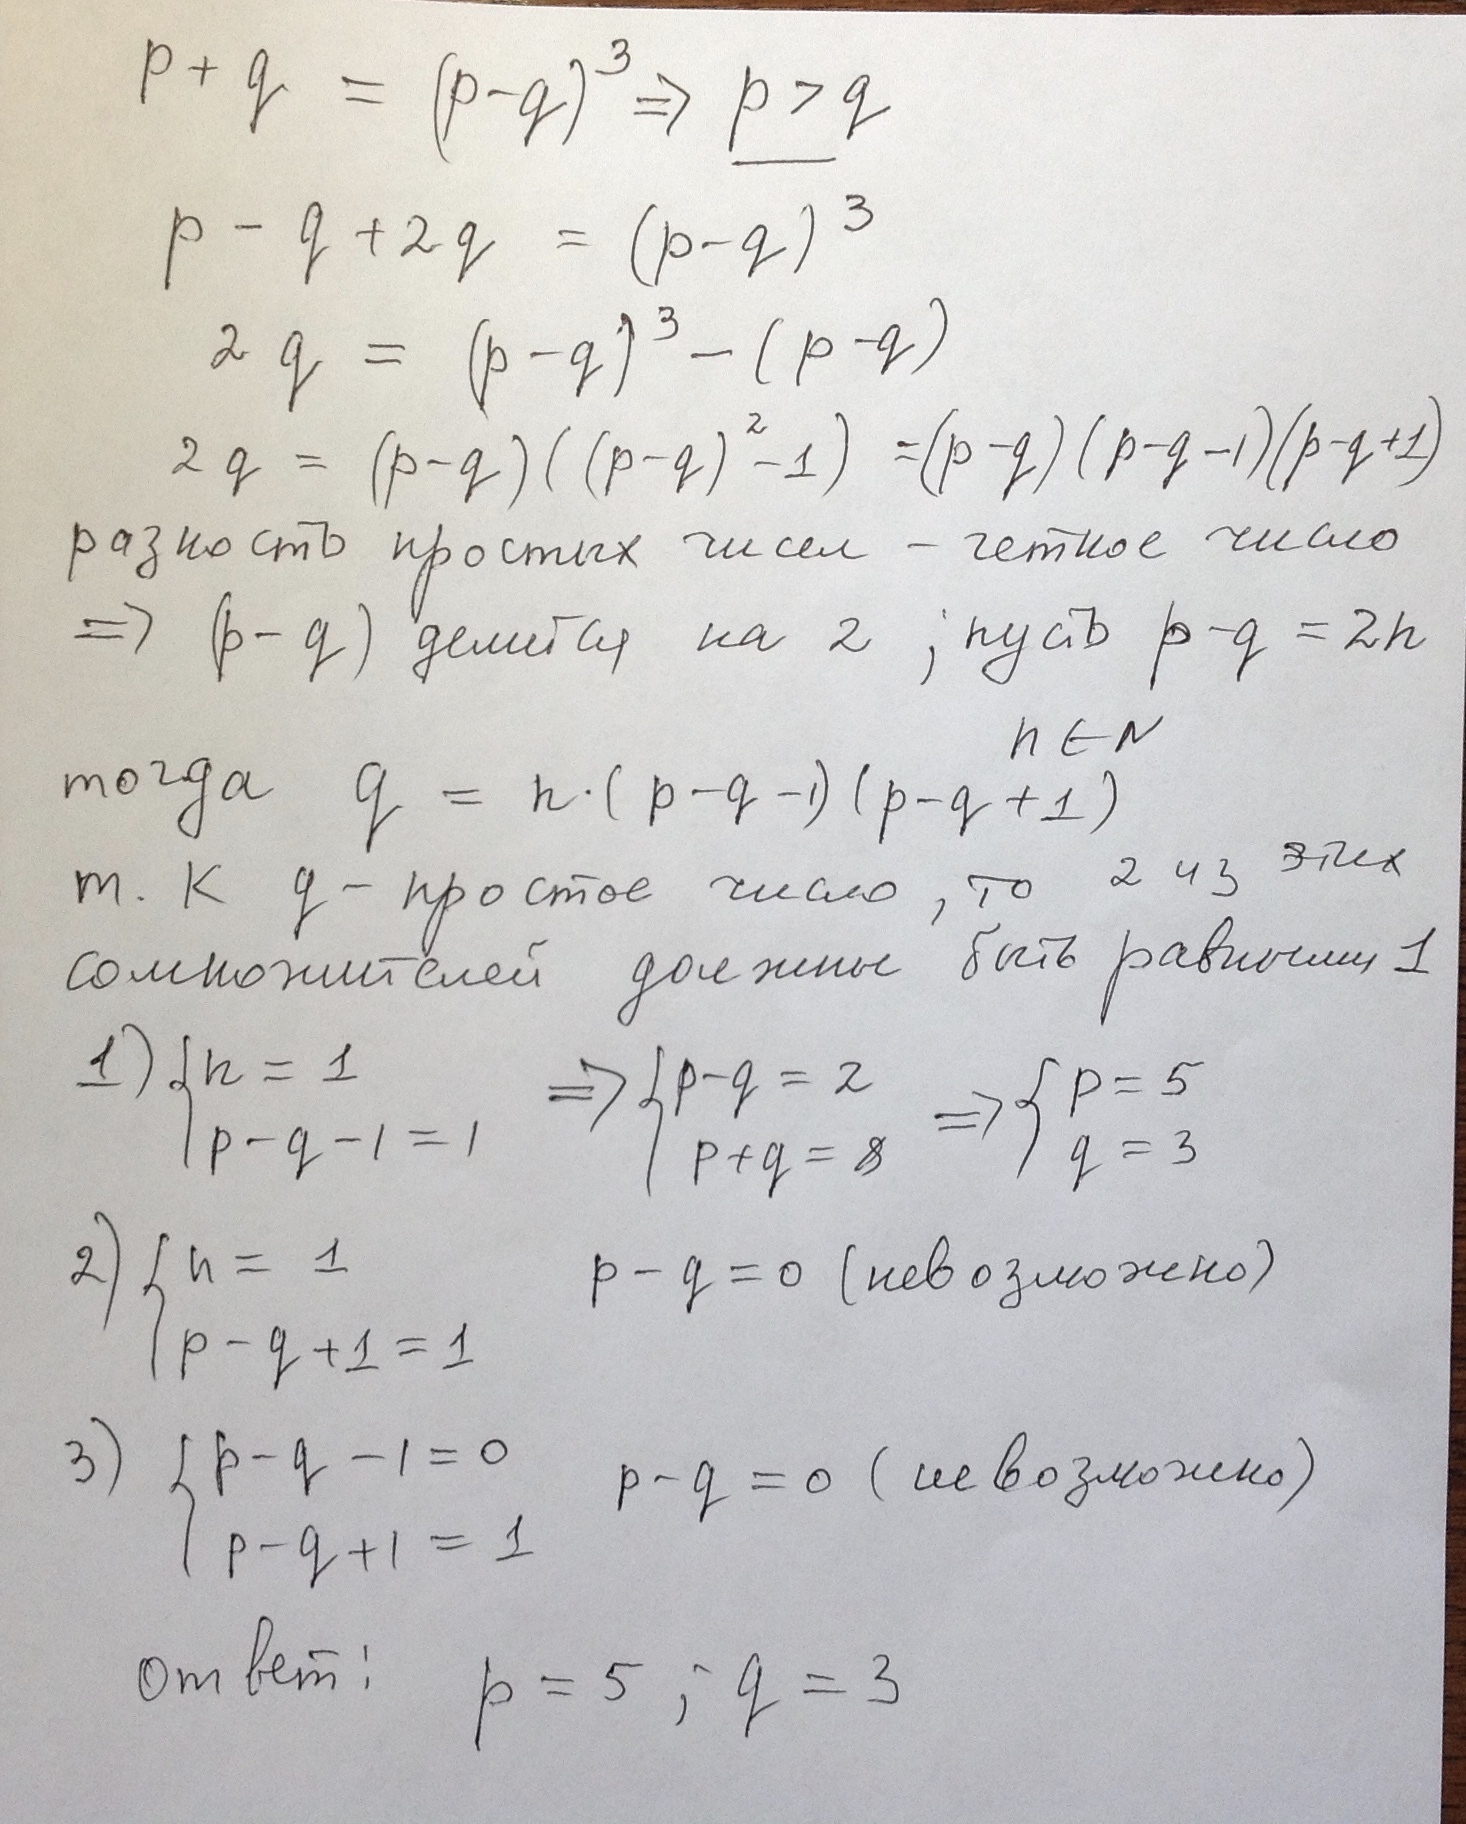 p + q = (p-q)³ => p > q
p - q + 2q = (p-q)³
2q = (p-q)³ - (p-q)
2q = (p-q)((p-q)² - 1) = (p-q)(p-q-1)(p-q+1)
разность простых чисел - четное число
=> (p-q) делится на 2 ; пусть p-q = 2n
n ∈ N
тогда q = n·(p-q-1)(p-q+1)
т. к q - простое число, то 2 из этих
сомножителей должны быть равными 1
1) { n = 1 => { p-q = 2 => { p = 5
p-q-1 = 1 p+q = 8 q = 3
2) { n = 1 p-q = 0 (невозможно)
p-q+1 = 1
3) { p-q-1 = 0 p-q = 0 (невозможно)
p-q+1 = 1
ответ: p = 5 ; q = 3